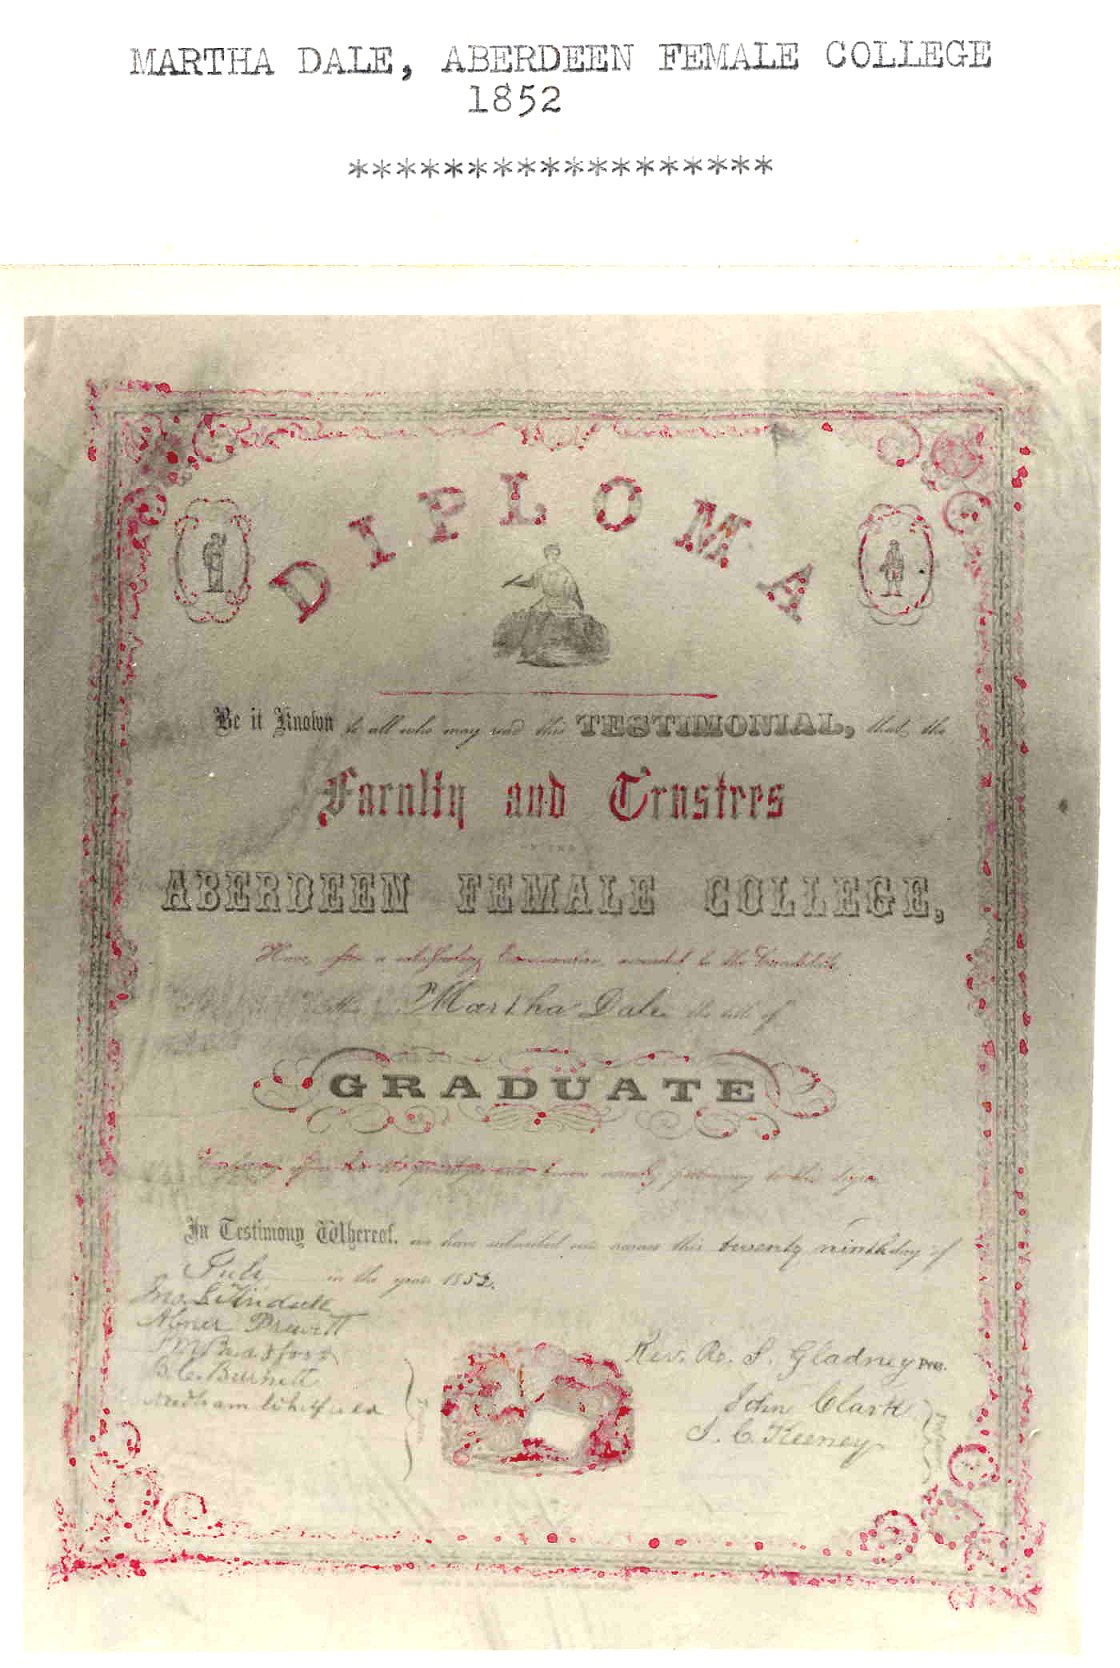 MARTHA DALE, ABERDEEN FEMALE COLLEGE
1852
******************
DIPLOMA
Be it Known to all who may read this TESTIMONIAL, that the
Faculty and Trustees
OF THE
ABERDEEN FEMALE COLLEGE,
Have, after a satisfactory Examination, awarded to the Candidate
Miss Martha Dale the title of
GRADUATE
In Testimony Whereof, we have subscribed our names this twenty ninth day of
July in the year 1852.
Abner Prewitt
B. C. Burnett
Needham Whitfield
Rev. R. S. Gladney Pres.
John Clark
S. C. Keeney